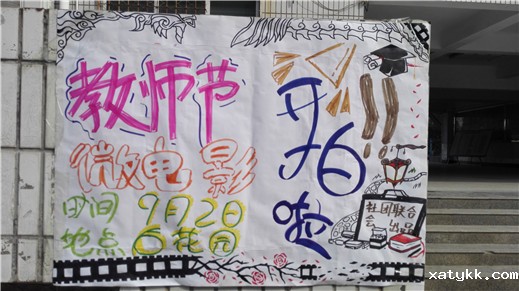 教师节
微电影
时间 9月2日
地点 白花园
开拍啦!!!
社团联合
会出品
xatykk.com